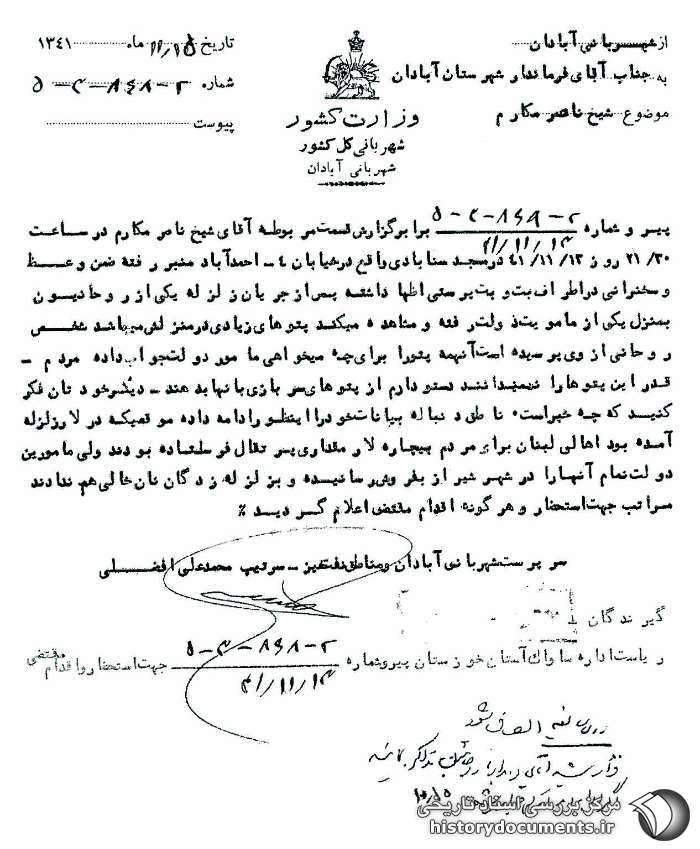 از شهربانی آبادان
به جناب آقای فرماندار شهرستان آبادان
موضوع شیخ ناصر مکارم
وزارت کشور
شهربانی کل کشور
شهربانی آبادان
تاریخ ۱۱/۱۵ ماه ۱۳۴۱
شماره ۲-۸۶۸-۳-۵
پیوست
پیرو شماره ۲-۸۶۸-۳-۵ ۴۱/۱۱/۱۳ برابر گزارش قسمت مربوطه آقای شیخ ناصر مکارم در ساعت
۲۱/۳۰ روز ۴۱/۱۱/۱۳ در مسجد سنابادی واقع در خیابان ۴ ـ احمدآباد منبر رفته ضمن وعظ
و سخنرانی در اطراف بت و بت پرستی اظهار داشته پس از جریان زلزله یکی از روحانیون
بمنزل یکی از مامورین دولت رفته و مشاهده میکند پتوهای زیادی در منزلش میباشد شخص
روحانی از وی پرسیده است آنهمه پتو را برای چه میخواهی مامور دولت جواب داده مردم ـ
قدر این پتوها را نمیدانند دستور دارم از پتوهای سربازی بآنها بدهند ـ دیگر خودتان فکر
کنید که چه خبر است۰ ناطق دنباله بیانات خود را اینطور ادامه داده موقعیکه در لار زلزله
آمده بود اهالی لبنان برای مردم بیچاره لار مقداری پرتقال فرستاده بودند ولی مامورین
دولت تمام آنها را در شهر شیراز بفروش رسانیده و بزلزله زدگان نان خالی هم ندادند
مراتب جهت استحضار و هرگونه اقدام مقتضی اعلام گردید ٪
سرپرست شهربانی آبادان و مناطق نفتخیز ـ سرتیپ محمدعلی افضلی
گیرندگان
ریاست اداره ساواک استان خوزستان پیرو شماره ۲-۸۶۸-۳-۵ ۴۱/۱۱/۱۳ جهت استحضار و اقدام مقتضی
مرکز بررسی اسناد تاریخی
historydocuments.ir